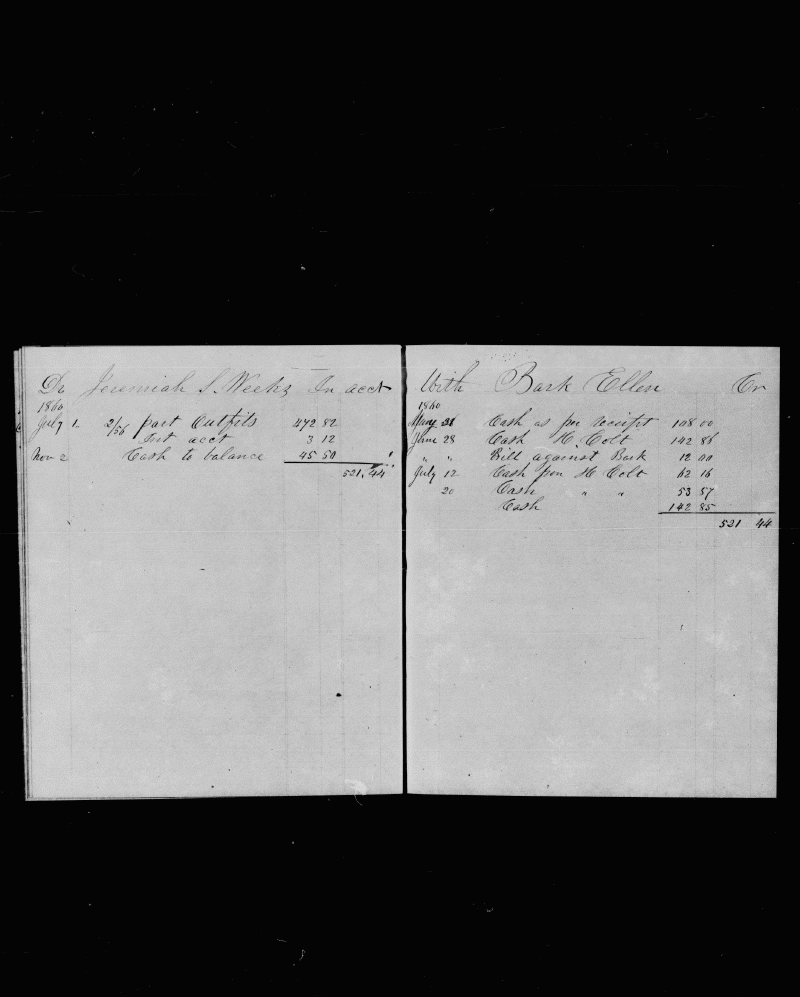 Dr Jeremiah S. Weeks In acct
1860
July 1. 2/56 part Outfits 472 82
Int acct 3 12
Nov 2 Cash to balance 45 50
521,44
With Bark Ellen Cr
1860
Cash as per receipt 108 00
June 28 Cash H. Colt 142 86
" " Bill against Bark 12 00
July 12 Cash per H Colt 62 16
20 Cash " " 53 57
Cash 142 85
521 44